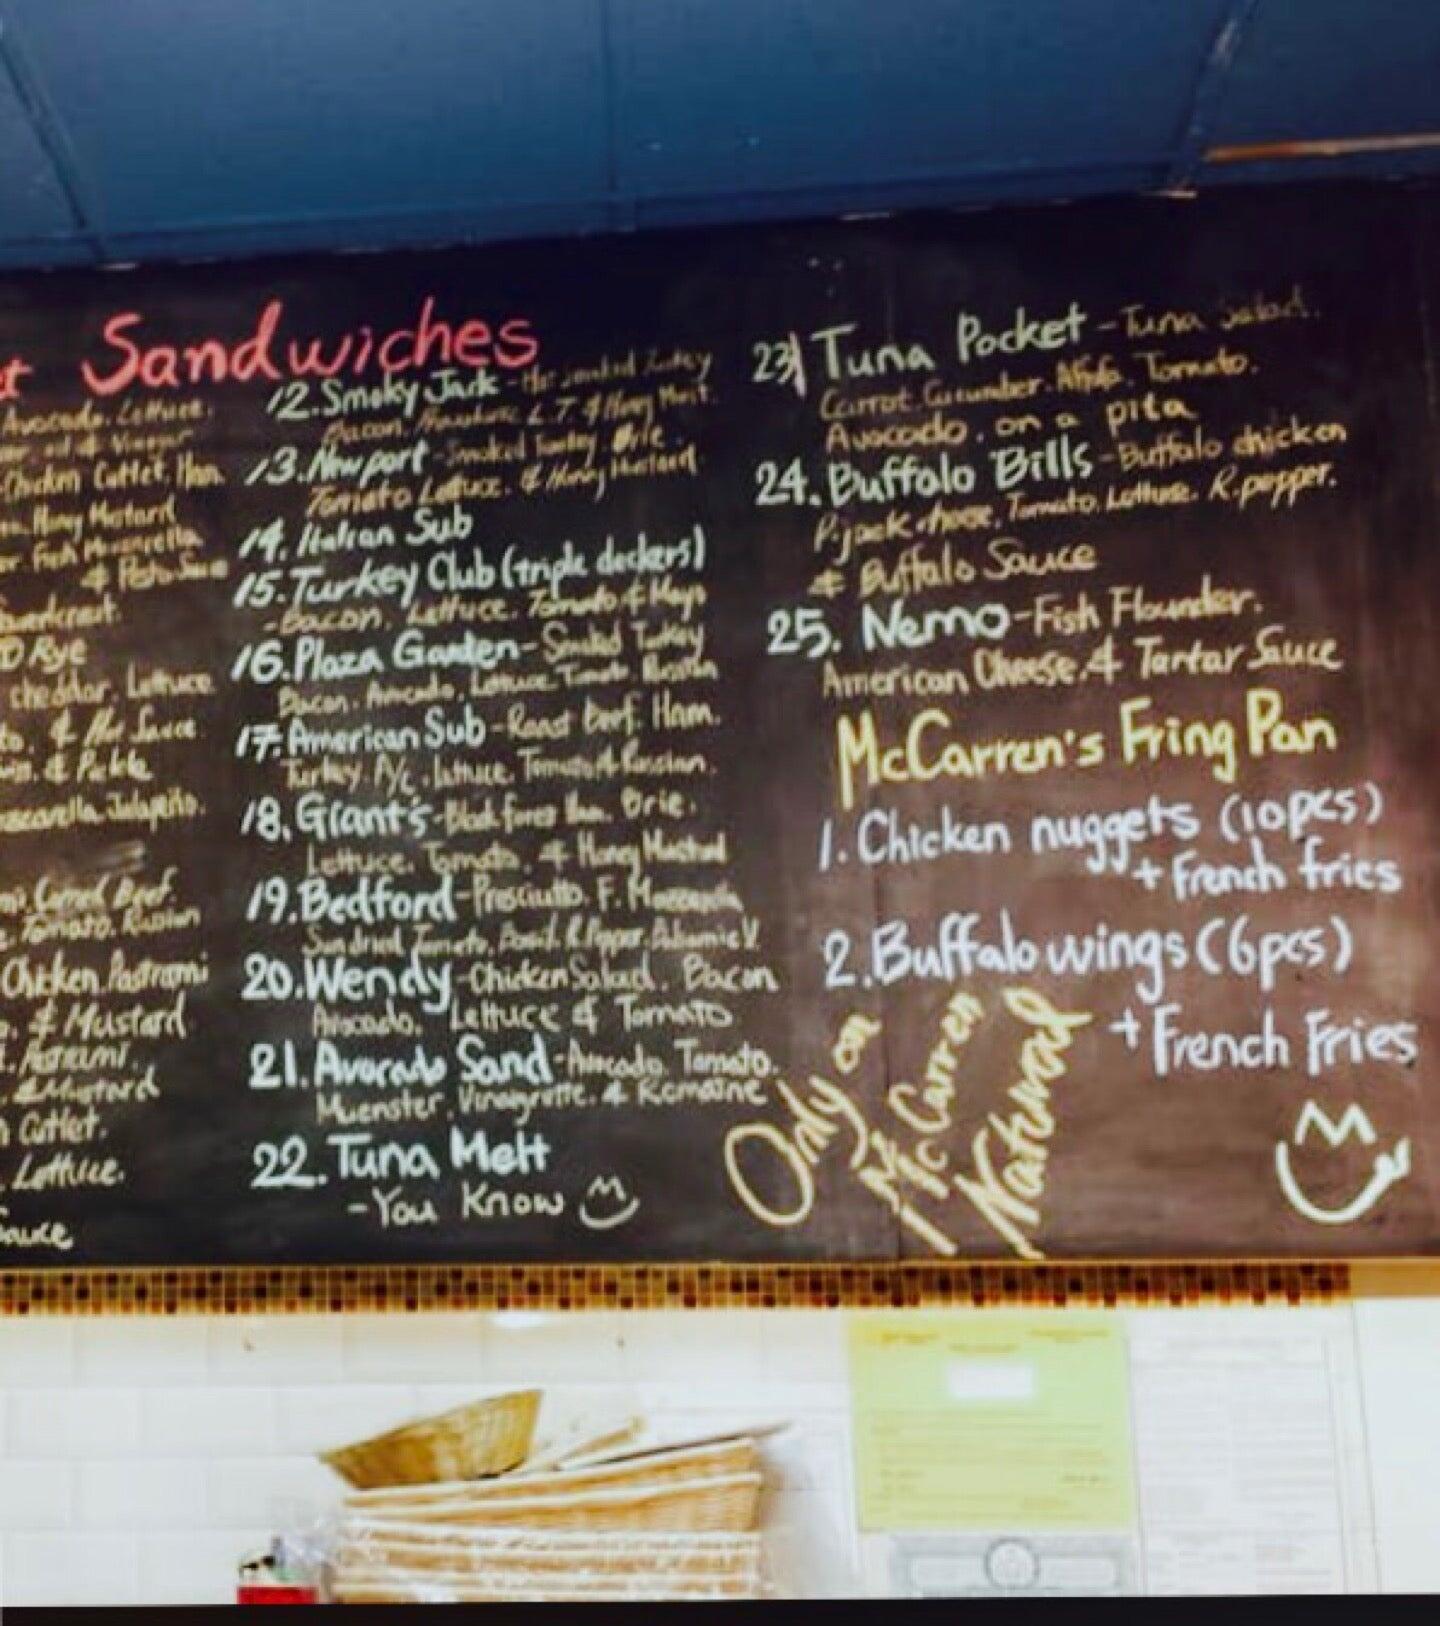 Sandwiches
Avocado. Lettuce.
oil & Vinegar
Chicken Cutlet, Ham
Honey Mustard
Fresh Mozzarella
& Pesto Sauce
Sauerkraut.
Rye
cheddar, Lettuce
& Hot Sauce
& Pickle
Jalapeño.
Corned Beef.
Tomato. Russian
Chicken. Pastrami
& Mustard
Pastrami.
& Mustard
Cutlet.
Lettuce.
Sauce
12. Smoky Jack - smoked Turkey
Bacon. L.T. & Honey Must.
13. Newport - Smoked Turkey. Brie.
Tomato Lettuce. & Honey Mustard
14. Italian Sub
15. Turkey Club (triple deckers)
- Bacon, Lettuce. Tomato & Mayo
16. Plaza Garden - Smoked Turkey
Bacon. Avocado. Lettuce. Tomato. Russian
17. American Sub - Roast Beef. Ham.
Turkey. A/c. lettuce. Tomato & Russian.
18. Giant's - Black forest Ham. Brie.
Lettuce. Tomato. & Honey Mustard
19. Bedford - Prosciutto. F. Mozzarella
Sundried Tomato. Basil. R. Pepper. Balsamic V.
20. Wendy - Chicken Salad. Bacon
Avocado. Lettuce & Tomato
21. Avocado Sand - Avocado. Tomato.
Muenster. Vinaigrette. & Romaine
22. Tuna Melt
- You Know
23) Tuna Pocket - Tuna Salad.
Carrot. Cucumber. Alfalfa. Tomato.
Avocado. on a pita
24. Buffalo Bills - Buffalo chicken
P.jack cheese. Tomato. Lettuce. R. pepper.
& Buffalo Sauce
25. Nemo - Fish Flounder.
American Cheese. & Tartar Sauce
McCarren's Fring Pan
1. Chicken nuggets (10pcs)
+ French fries
2. Buffalo wings (6pcs)
+ French Fries
Only on
McCarren
Natural